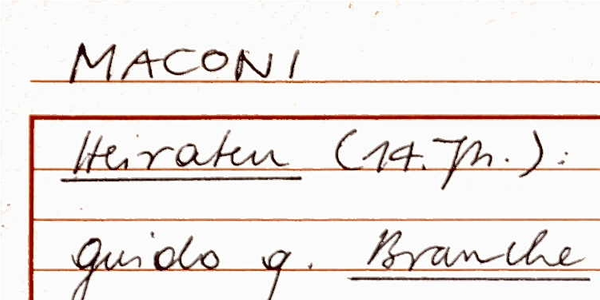 MACONI
Heiraten (14. Jh.):
Guido q. Branche